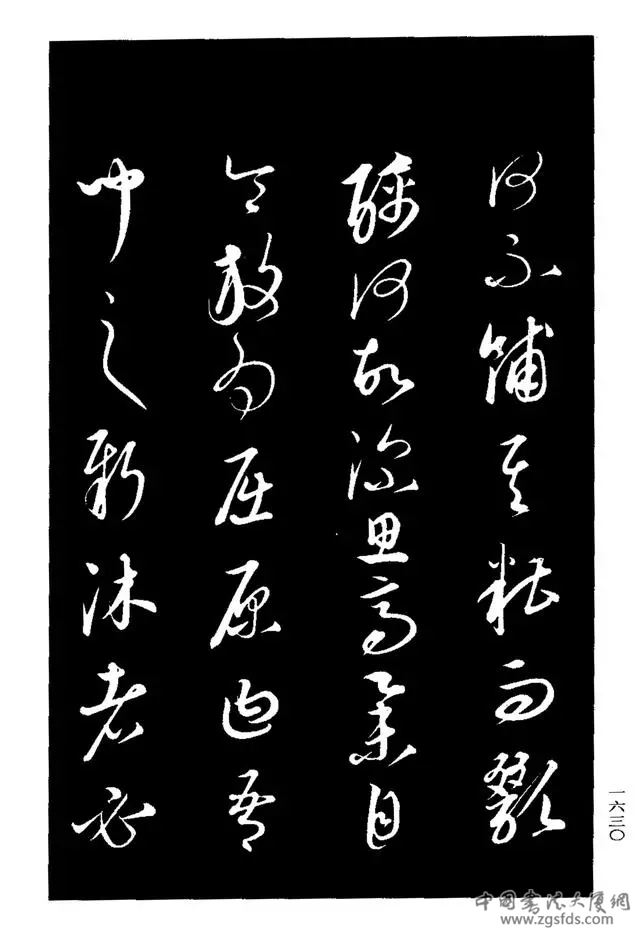 何不餔其糟而歠
醨何故深思高舉自
令放為屈原曰吾
聞之新沐者必
一六三〇
中国書法大廈網
www.zgsfds.com